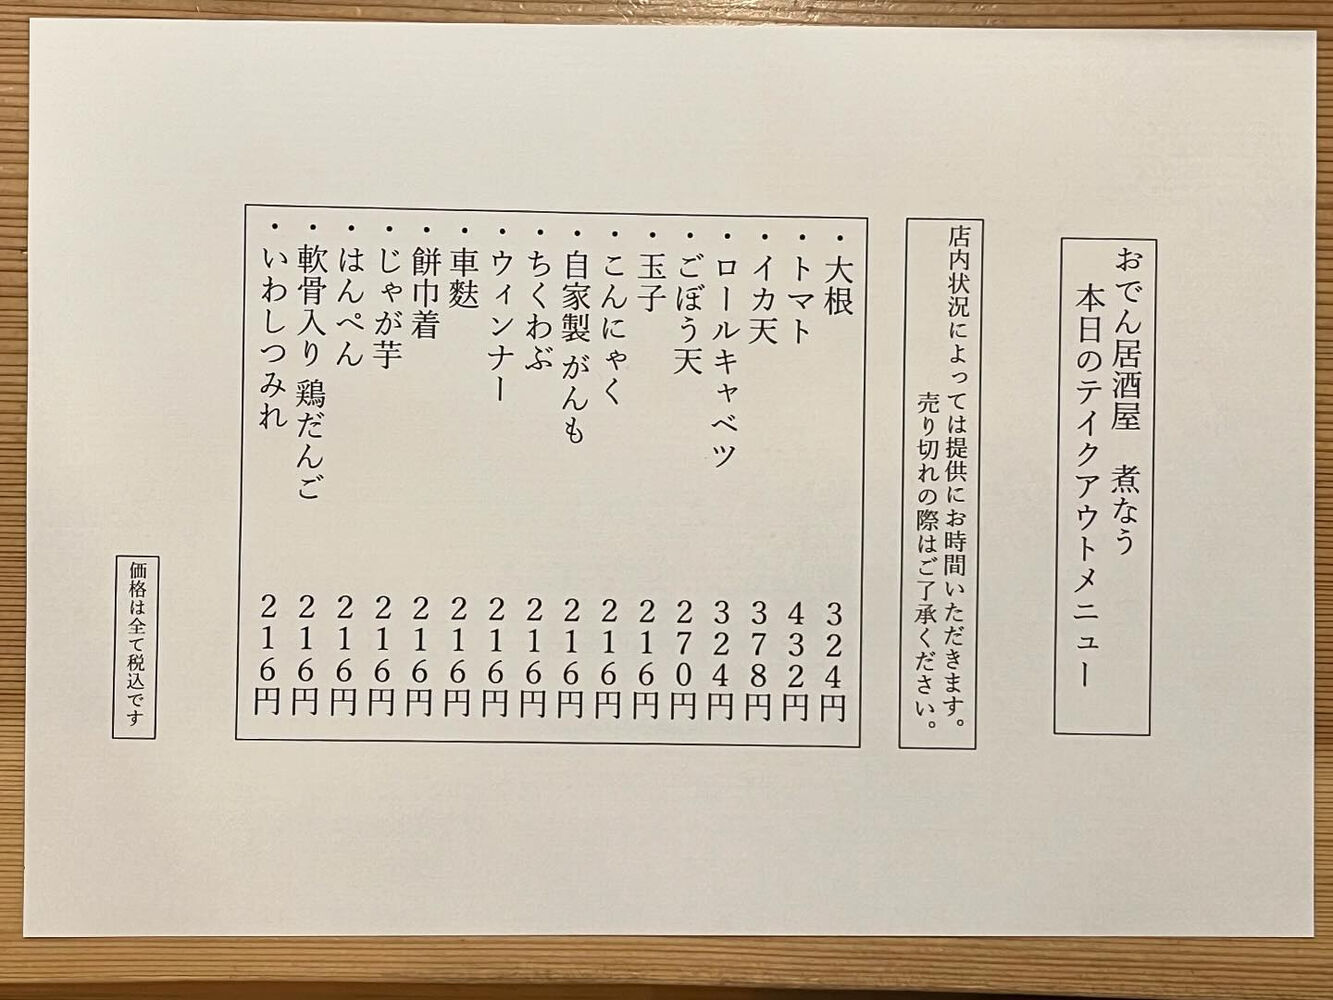 おでん居酒屋　煮なう
本日のテイクアウトメニュー
店内状況によっては提供にお時間いただきます。
売り切れの際はご了承ください。
・大根　324円
・トマト　432円
・イカ天　378円
・ロールキャベツ　324円
・ごぼう天　270円
・玉子　216円
・こんにゃく　216円
・自家製がんも　216円
・ちくわぶ　216円
・ウィンナー　216円
・車麩　216円
・餅巾着　216円
・じゃが芋　216円
・はんぺん　216円
・軟骨入り鶏だんご　216円
・いわしつみれ　216円
価格は全て税込です